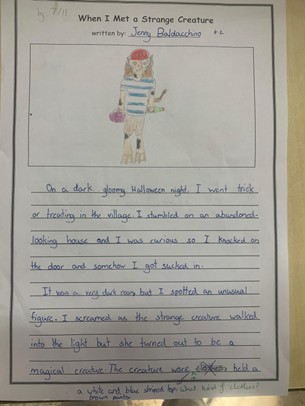 7/11
When I Met a Strange Creature
written by: Jenny Baldacchino
On a dark gloomy Halloween night. I went trick
or treating in the village. I stumbled on an abandoned-
looking house and I was curious so I knocked on
the door and somehow I got sucked in.
It was a very dark room but I spotted an unusual
figure. I screamed as the strange creature walked
into the light but she turned out to be a
magical creature. The creature wore held a
a white and blue striped what kind of clothes?
brown